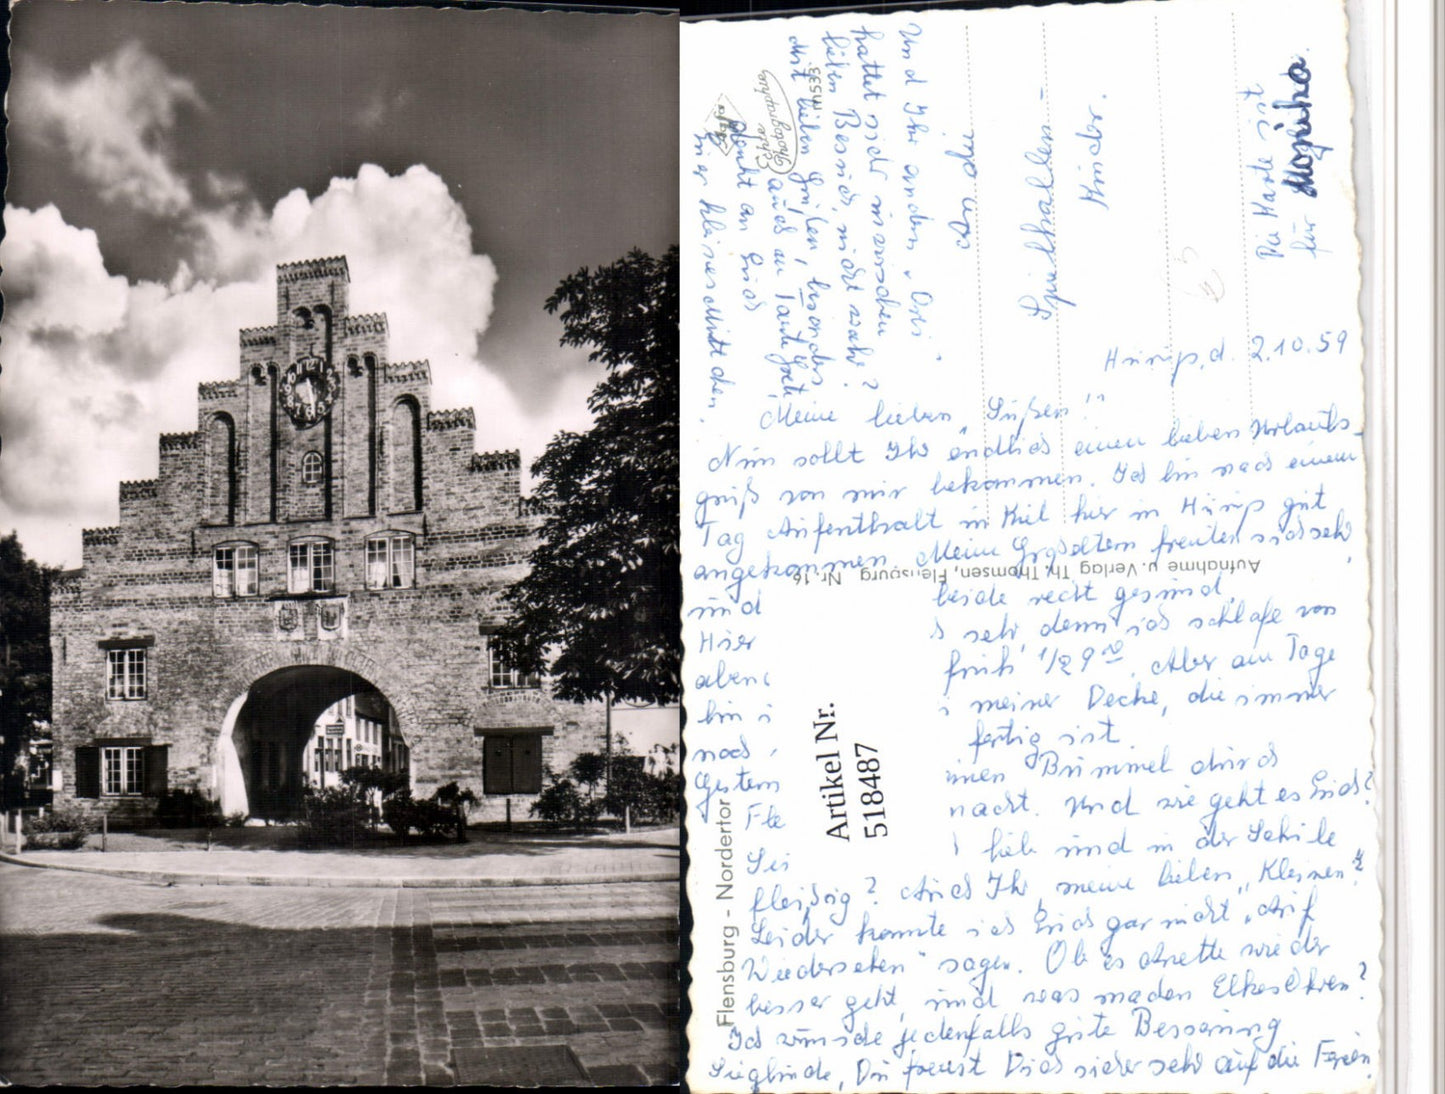 Meine lieben „Süßen"!
Nun sollt Ihr endlich einen lieben Urlaubs-
gruß von mir bekommen. Ich bin nach einem
Tag Aufenthalt in Kiel hier in Hürup gut
angekommen. Meine Großeltern freuten sich sehr
und beide recht gesund.
Hier sehr, denn ich schlafe von
früh 1/2 9 00. Aber am Tage
bin i meiner Decke, die immer
noch fertig ist.
Gestern inen Bummel durch
Fle macht. Und wie geht es Euch?
Sei lieb und in der Schule
fleißig? Auch Ihr, meine lieben „Kleinen"?
Leider konnte ich Euch gar nicht „Auf
Wiedersehen" sagen. Ob es Annette wieder
besser geht, und was machen Elkes Ohren?
Ich wünsche jedenfalls gute Besserung
Sieglinde, Du freust Dich sicher sehr auf die Ferien.
Und Ihr andern
hattet sich inzwischen
lieben Besuch, nicht wahr?
Mit lieben Grüßen, besonders
auch an Tante Grete,
denkt an Euch
Euer kleines Mittchen.
2.10.59
An die
Spielhallen-
Kinder.
Die Karte ist
für Monika.
Agfa
Echte
Photographie
M 533
Aufnahme u. Verlag Th. Thomsen, Flensburg. Nr. 16
Flensburg - Nordertor
Artikel Nr.
518487